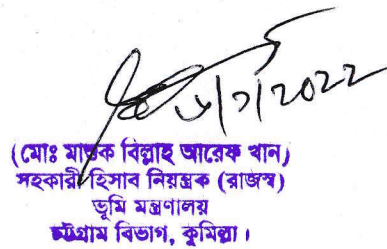 ৬/১/২০২২
(মোঃ মাশুক বিল্লাহ আরেফ খান)
সহকারী হিসাব নিয়ন্ত্রক (রাজস্ব)
ভূমি মন্ত্রণালয়
চট্টগ্রাম বিভাগ, কুমিল্লা।